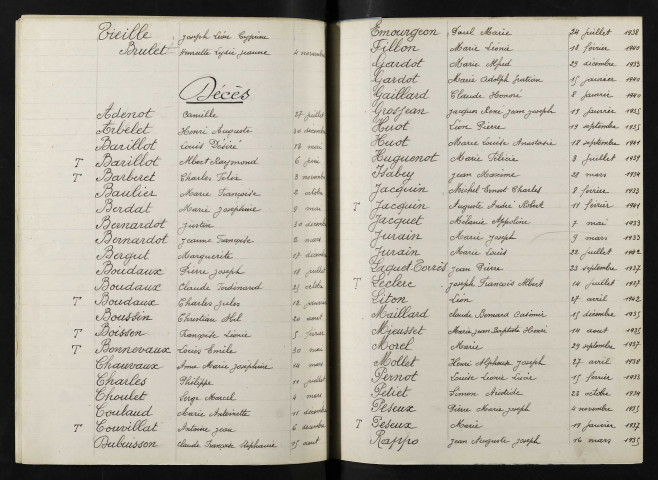 Vieille Joseph Léon Cyprien
Brulet Henriette Lydie Jeanne 4 novembre
Décès
Adenot Camille 27 juillet
Arbelet Henri Auguste 30 décembre
Barillot Louis Désiré 18 mai
T Barillot Albert Raymond 6 juin
T Barberet Charles Félix 3 novembre
Baulier Marie Françoise 2 octobre
Berdat Marie Joséphine 9 mai
Bernardot Justin 30 décembre
Bernardot Jeanne Françoise 2 mars
Bergut Marguerite 17 décembre
Boudaux Pierre Joseph 18 juillet
Boudaux Claude Ferdinand 25 octobre
T Boudaux Charles Jules 12 janvier
Boussin Christian 20 août
T Boisson Françoise Léonie 5 février
T Bonnevaux Louis Emile 30 mai
Chauvaux Anna Marie Joséphine 14 mars
Charles Philippe 11 juillet
Choulet Serge Marcel 4 mars
Coulaud Marie Antoinette 11 décembre
T Couvillat Antoine Jean 6 décembre
Dubuisson Claude Françoise Stéphanie 15 août
Emourgeon Paul Marie 24 juillet 1938
Fillon Marie Léonie 18 février 1940
Gardot Marie Alfred 29 décembre 1933
Gardot Marie Adolph 15 janvier 1940
Gaillard Claude Honoré 8 janvier 1940
Grosjean Jacques René Jean Joseph 19 janvier 1935
Huot Léon Pierre 19 septembre 1935
Huot Marie Louise Anastasie 18 septembre 1941
Huguenot Marie Félicie 8 juillet 1939
Isabey Jean Maxime 28 mars 1934
Jacquin Michel Ernest Charles 2 février 1938
T Jacquin Auguste André Robert 11 février 1941
Jacquet Mélanie Appoline 7 mai 1933
Jurain Marie Joseph 9 mars 1933
Jurain Marie Louis 22 juillet 1942
Laguet-Torrès Jean Pierre 23 septembre 1937
T Leclerc Joseph François Albert 14 juillet 1937
Liton Léon 27 avril 1942
Maillard Claude Bernard Casimir 15 décembre 1935
Mjeusset Marie Jean Baptiste Henri 14 août 1935
Morel Marie 29 septembre 1937
Mollet Henri Alphonse Joseph 27 avril 1938
Pernot Louise Léonie Livie 15 février 1933
Petiet Simon Aristide 23 octobre 1934
Peseux Pierre Marie Joseph 4 novembre 1935
T Peseux Marie 19 janvier 1937
Rappo Jean Auguste Joseph 16 mars 1935